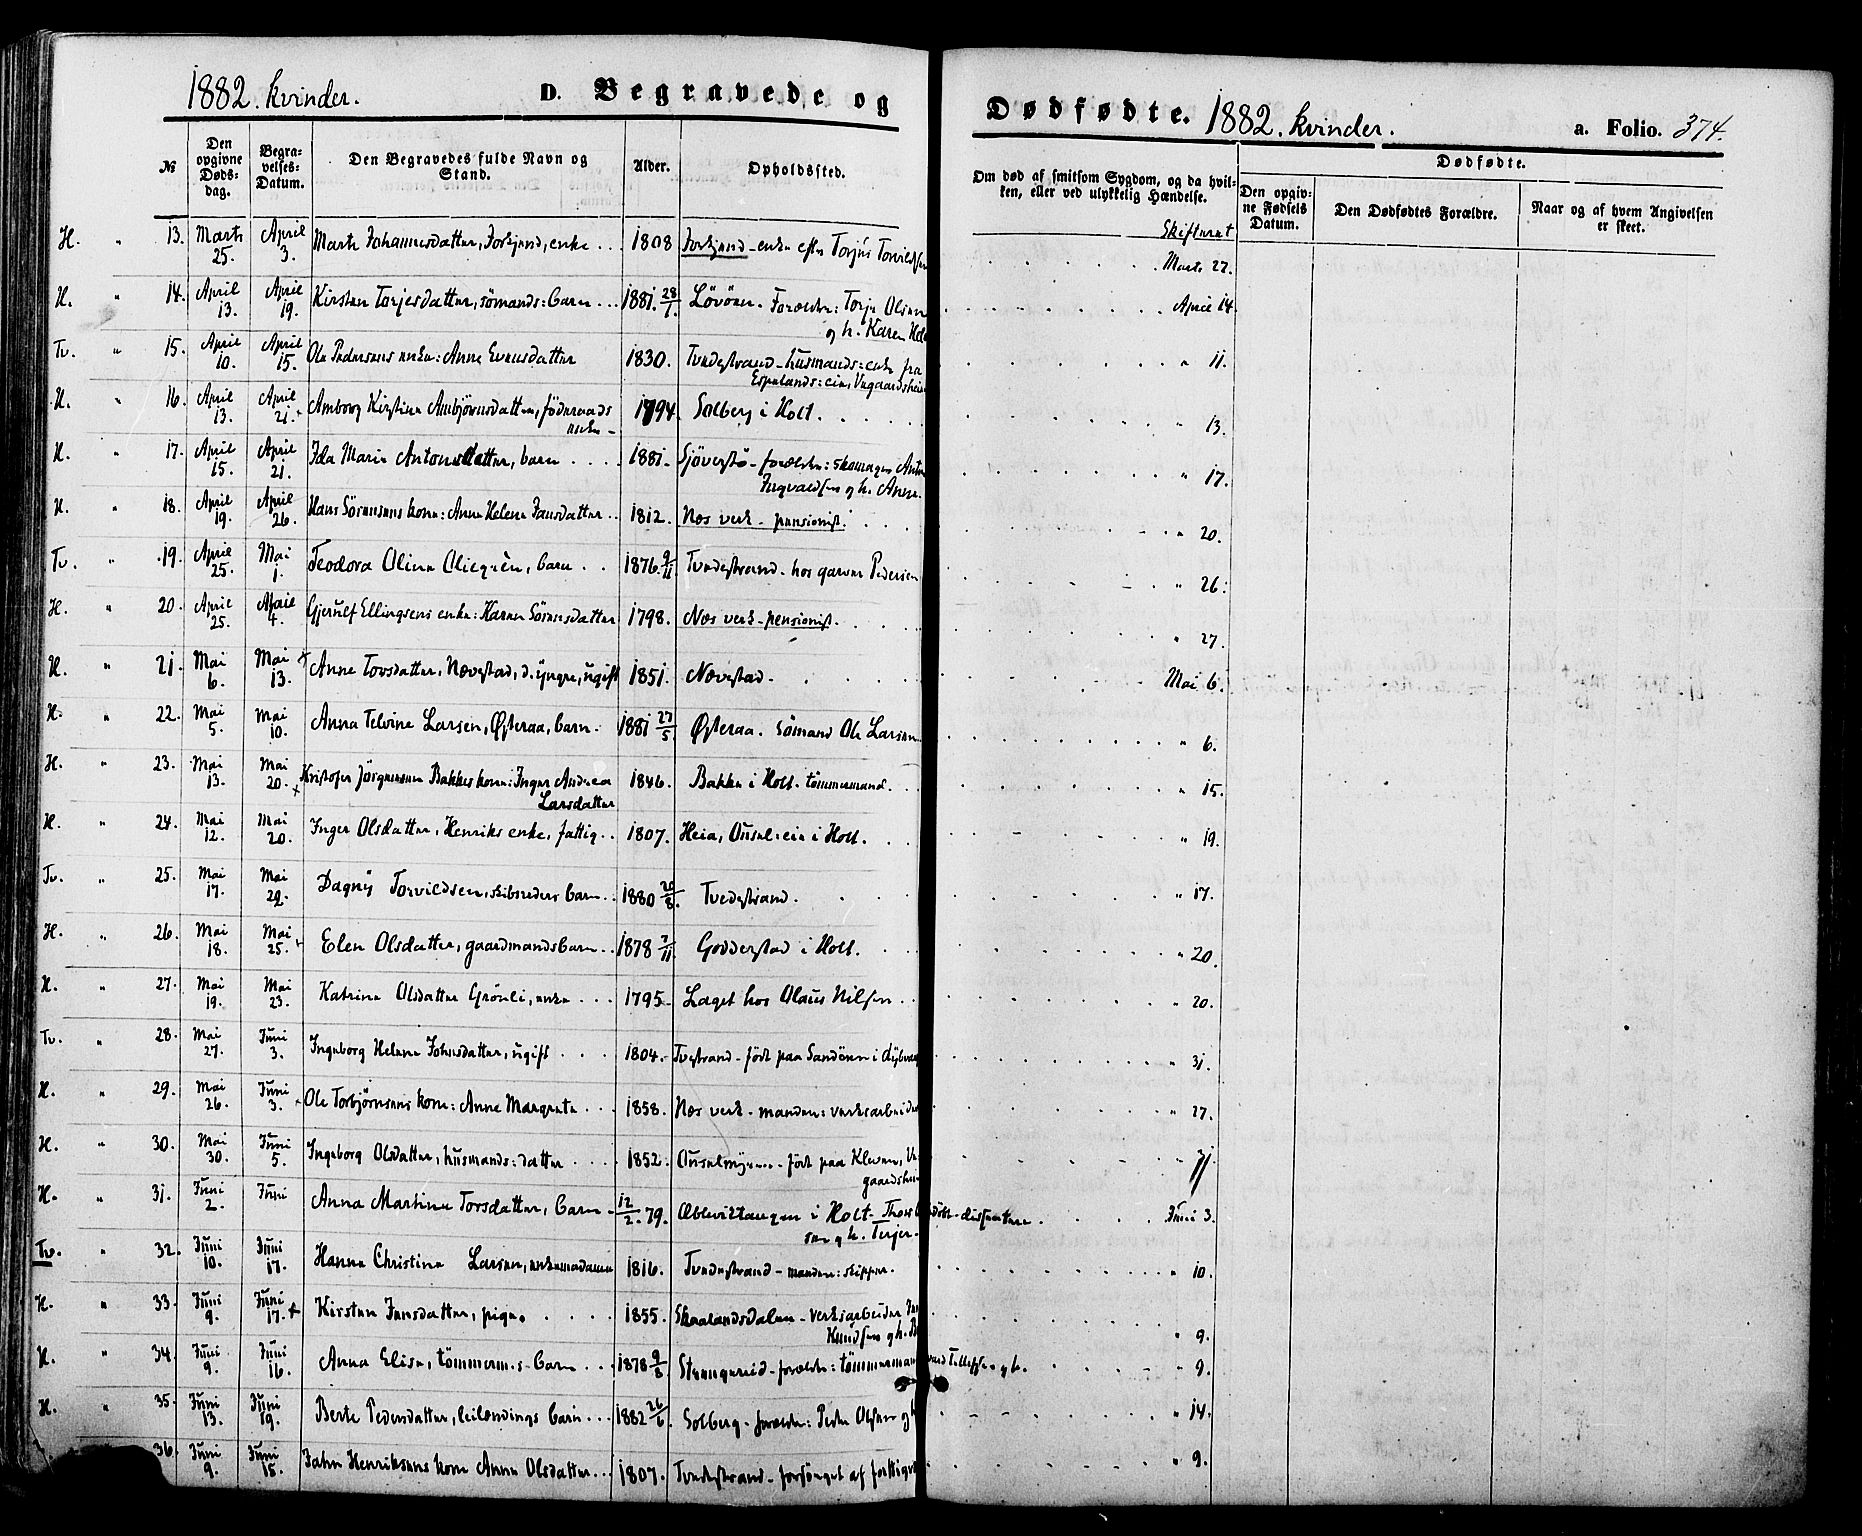 1882. kvinder.
D. Begravede og
Dødfødte. 1882. kvinder.
a. Folio. 374.
№
Den opgivne Døds-dag.
Begra-velses-Datum.
Den Begravedes fulde Navn og Stand.
Alder.
Opholdssted.
Om død af smitsom Sygdom, og da hvil-ken, eller ved ulykkelig Hændelse.
Dødfødte.
Den opgiv-ne Fødsels Datum.
Den Dødfødtes Forældre.
Naar og af hvem Angivelsen er skeet.
Skifteret
H. " 13. Marts 25. April 3. Marte Johannesdatter, enke 1808 enke efter Torjus Marts 27.
H. " 14. April 13. April 19. Kirsten Torjesdatter, sömands: barn 1881. 28/1. Løvöen. Forældre: Torje Olsen og h. Karen April 14.
Tv. " 15. April 10. April 15. Ole Pedersens enke: Anne Evensdatter 1830. Tvedestrand - husmands: enke fra " 11.
H. " 16. April 13. April 21. Amborg Kirstine Ambjörnsdatter, föderaads enke - 1794. Solberg i Holt. " 13.
H. " 17. April 15. April 21. Ida Marie Antonsdatter, barn 1881. forældre: skomager " 17.
H. " 18. April 19. April 26. Hans Sörensens kone: Anne Helene Jensdatter 1812. Næs verk - pensionist. " 20.
Tv. " 19. April 25. Mai 1. Teodora Oline barn 1876. 9/11 Tvedestrand - hos garver Pedersen " 26.
H. " 20. April 25. 4. Gjerulf Ellingsens enke: Karen Sörensdatter 1798. Næs verk - pensionist. " 27.
H. " 21. Mai 6. Mai 13. Anne Torsdatter, Nævestad, d. yngre, ugift 1851. Nævestad. Mai 6.
H. " 22. Mai 5. Mai 10. Anna Telvine Larsen, Østeraa, barn. 1881 27/5. Østeraa. Sömand Ole Larsen " 6.
H. " 23. Mai 13. Mai 20. Kristofer Jörgensens Bakkes kone: Inger Andrea Larsdatter 1846. Bakke i Holt. tömmermand. " 15.
H. " 24. Mai 12. Mai 20. Inger Olsdatter, Henriks enke, fattig. 1807. Heia, i Holt. " 19.
Tv. " 25. Mai 17. Mai 22. Dagny Torvildsen, skibsreders barn 1880 20/8. Tvedestrand. " 17.
H. " 26. Mai 18. Mai 25. Elen Olsdatter, gaardmandsbarn 1878 7/11 Godderstad i Holt. " 20.
H. " 27. Mai 19. Mai 23. Katrine Olsdatter Grönli, enke 1795. Laget hos Olaus Nilsen " 20.
Tv. " 28. Mai 27. Juni 3. Ingeborg Helene Johnsdatter, ugift 1804. Tvestrand - født paa Sandöen i " 31.
H. " 29. Mai 26. Juni 3. Ole Torbjörnsens kone: Anne Margrete 1858. Næs verk - manden: verksarbeider " 27.
H. " 30. Mai 30. Juni 5. Ingeborg Olsdatter, husmands: datter 1852. født paa Kleven, " 31.
H. " 31. Juni 2. Juni Anna Martine Torsdatter, barn 12/2. 79. i Holt - Juni 3.
Tv. " 32. Juni 10. Juni 17. Hanne Christine Larsen, enkemadame 1816. Tvedestrand - manden: skipper. " 10.
H. " 33. Juni 9. Juni 17. Kirsten Jensdatter, pige. 1855. Skaalandsdalen - verksarbeider Knudsen og h. " 9.
H. " 34. Juni 9. Juni 16. Anna Elise, tömmerm:s barn 1878 9/8 forældre: tömmermand Tellefsen og h. " 9.
H. " 35. Juni 13. Juni 19. Berte Pedersdatter, leilændings barn 1882 26/6. Solberg - forældre: Peder Olsen og h " 14.
" 36. Juni 9. Juni 15. Henriksens kone Anne Olsdatter 1807. Tvedestrand - forsörget af " 9.